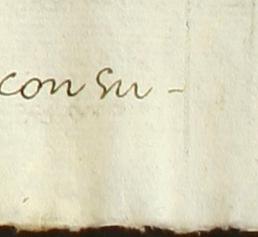 con su -